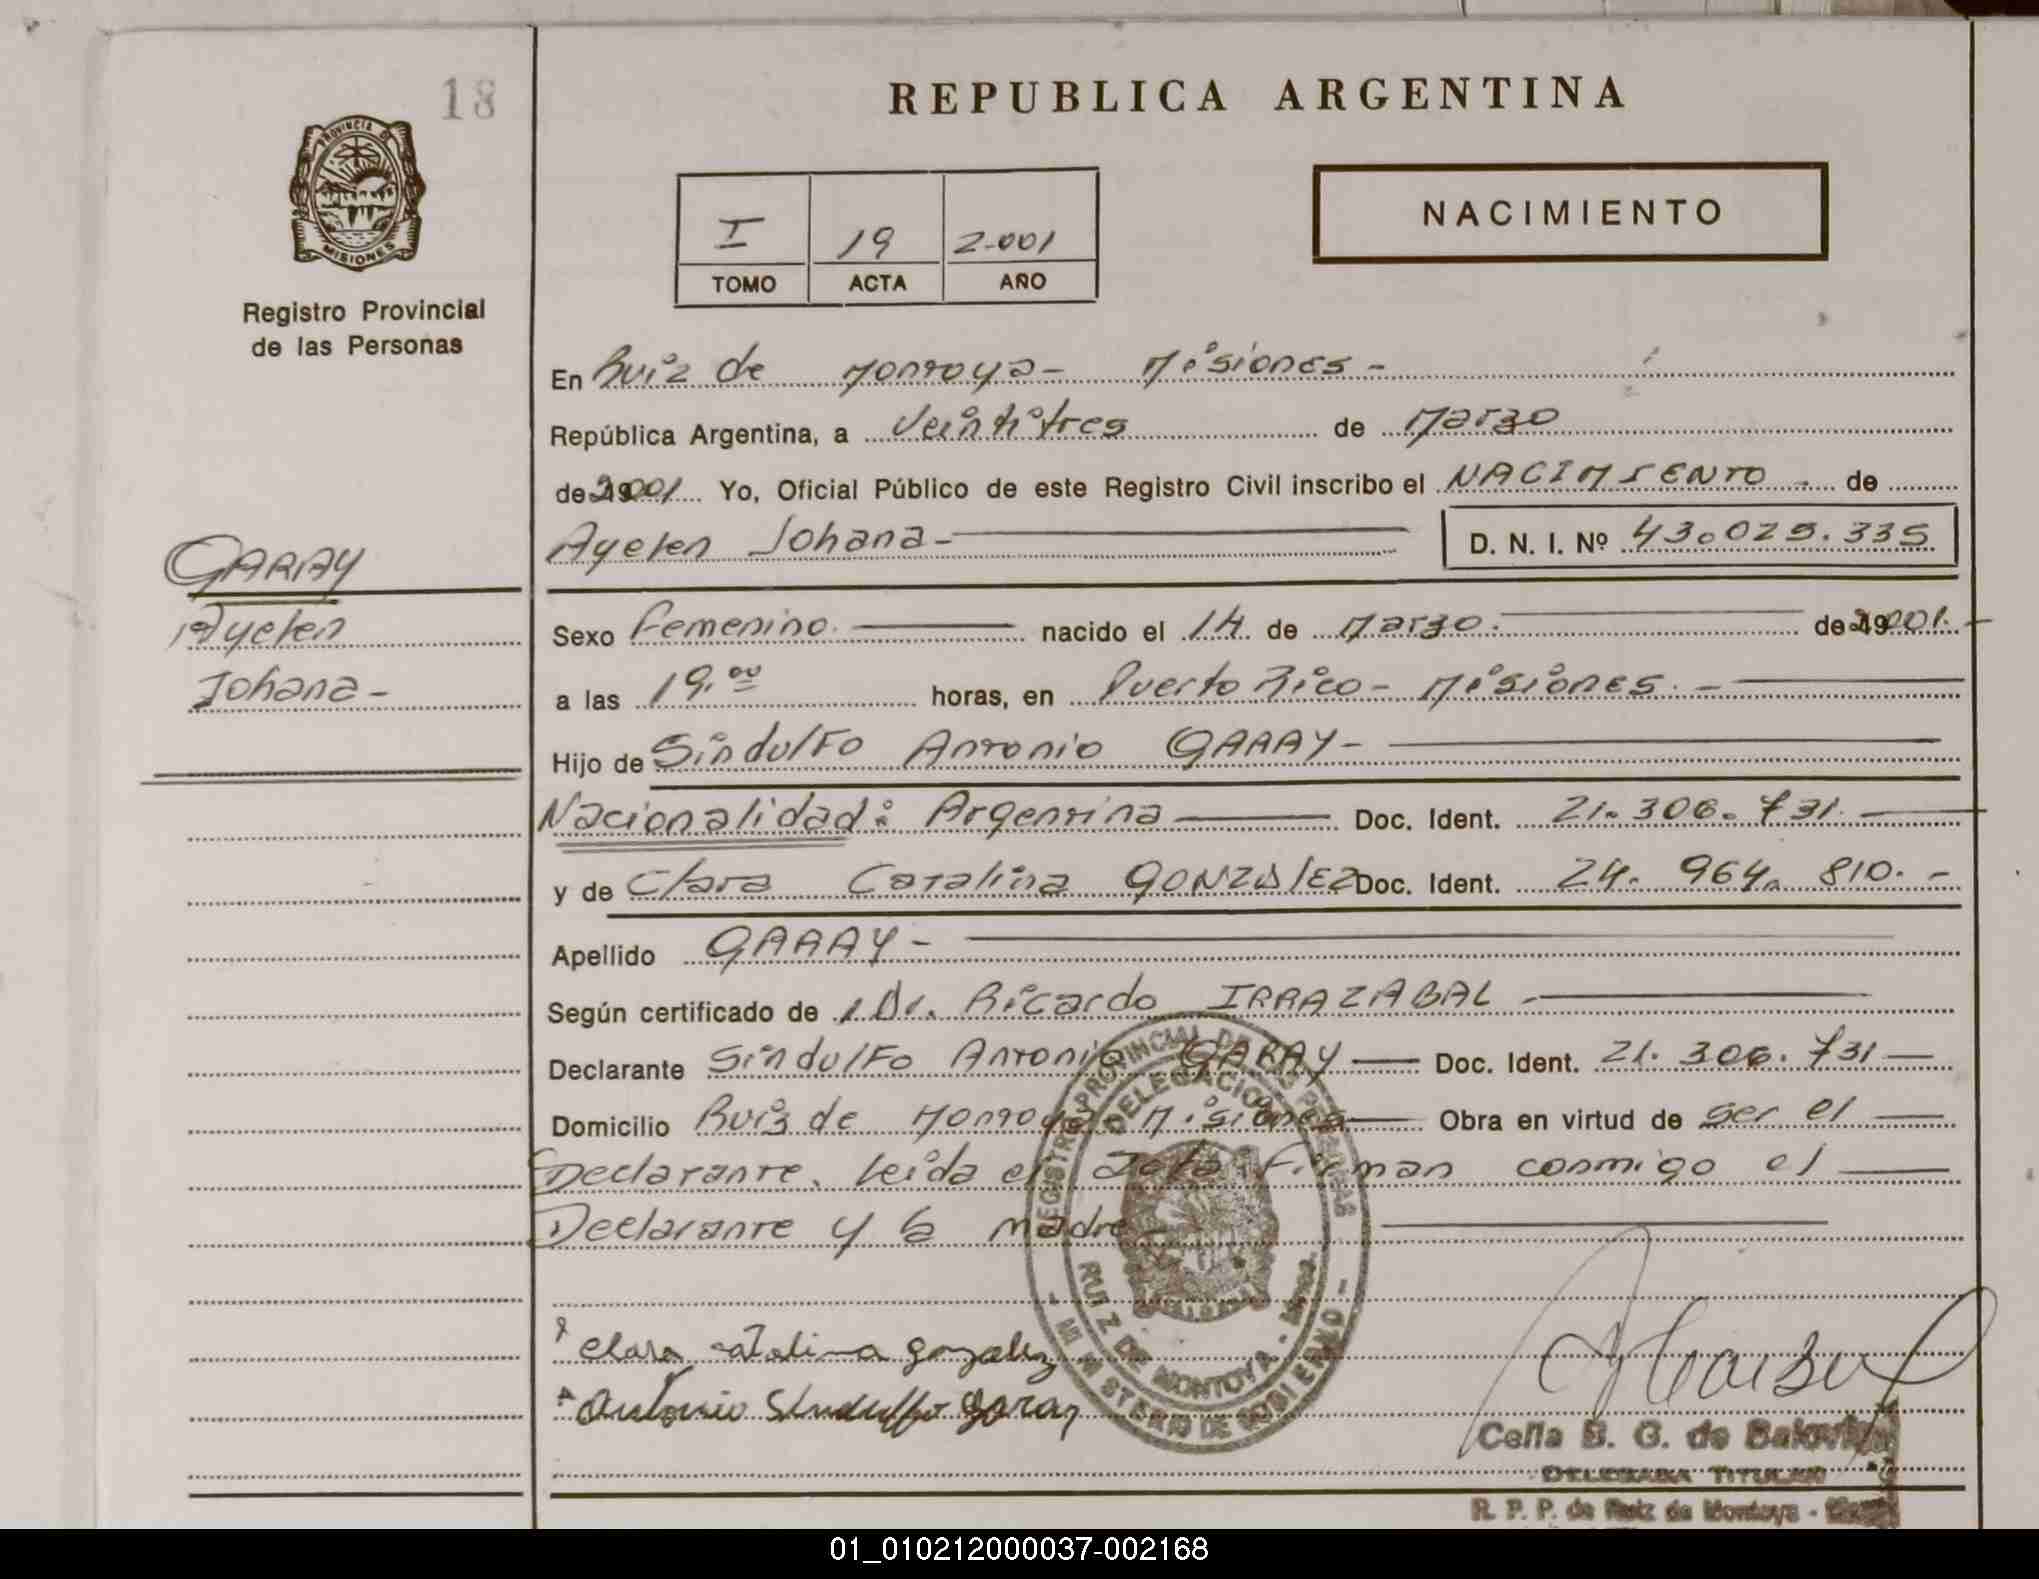 18
REPUBLICA ARGENTINA
PROVINCIA DE
MISIONES
Registro Provincial
de las Personas
NACIMIENTO
I 19 2.001
TOMO ACTA AÑO
En Ruiz de Montoya - Misiones -
República Argentina, a Veintitres de Marzo
de 2.001 Yo, Oficial Público de este Registro Civil inscribo el NACIMIENTO de
Ayelen Johana - D. N. I. Nº 43.029.335
GARAY
Ayelen
Johana -
Sexo Femenino. nacido el 14 de Marzo. de 2.001. -
a las 19,00 horas, en Puerto Rico - Misiones. -
Hijo de Sindulfo Antonio GARAY -
Nacionalidad: Argentina Doc. Ident. 21.306.731. -
y de Clara Catalina GONZALEZ Doc. Ident. 24. 964. 810. -
Apellido GARAY -
Según certificado de Dr. Ricardo IRRAZABAL -
Declarante Sindulfo Antonio GARAY - Doc. Ident. 21. 306. 731 -
Domicilio Ruiz de Montoya Misiones - Obra en virtud de ser el -
Declarante. Leida el Acta Firman conmigo el -
Declarante y la madre -
REGISTRO PROVINCIAL DE LAS PERSONAS
DELEGACION
RUIZ DE MONTOYA - Mnes.
- MINISTERIO DE GOBIERNO -
Clara catalina gonzalez
Antonio Sindulfo garay
Celia B. G. de
DELEGADA TITULAR
R. P. P. de Ruiz de Montoya -
01_010212000037-002168